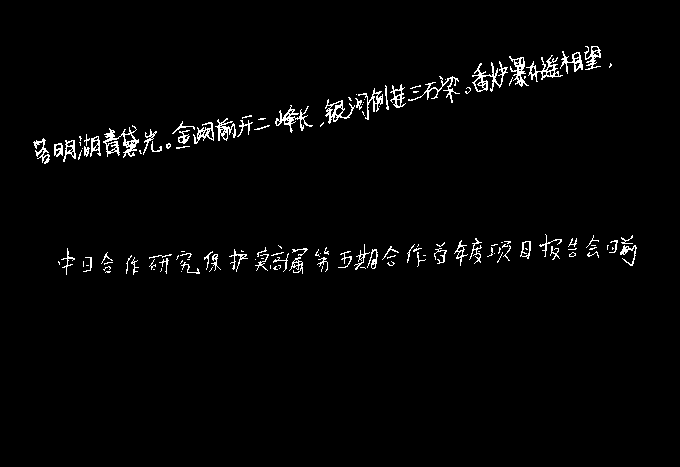 落明湖青黛光。金阙前开二峰长,银河倒挂三石梁。香炉瀑布遥相望,
中日合作研究保护莫高窟第五期合作首年度项目报告会日前